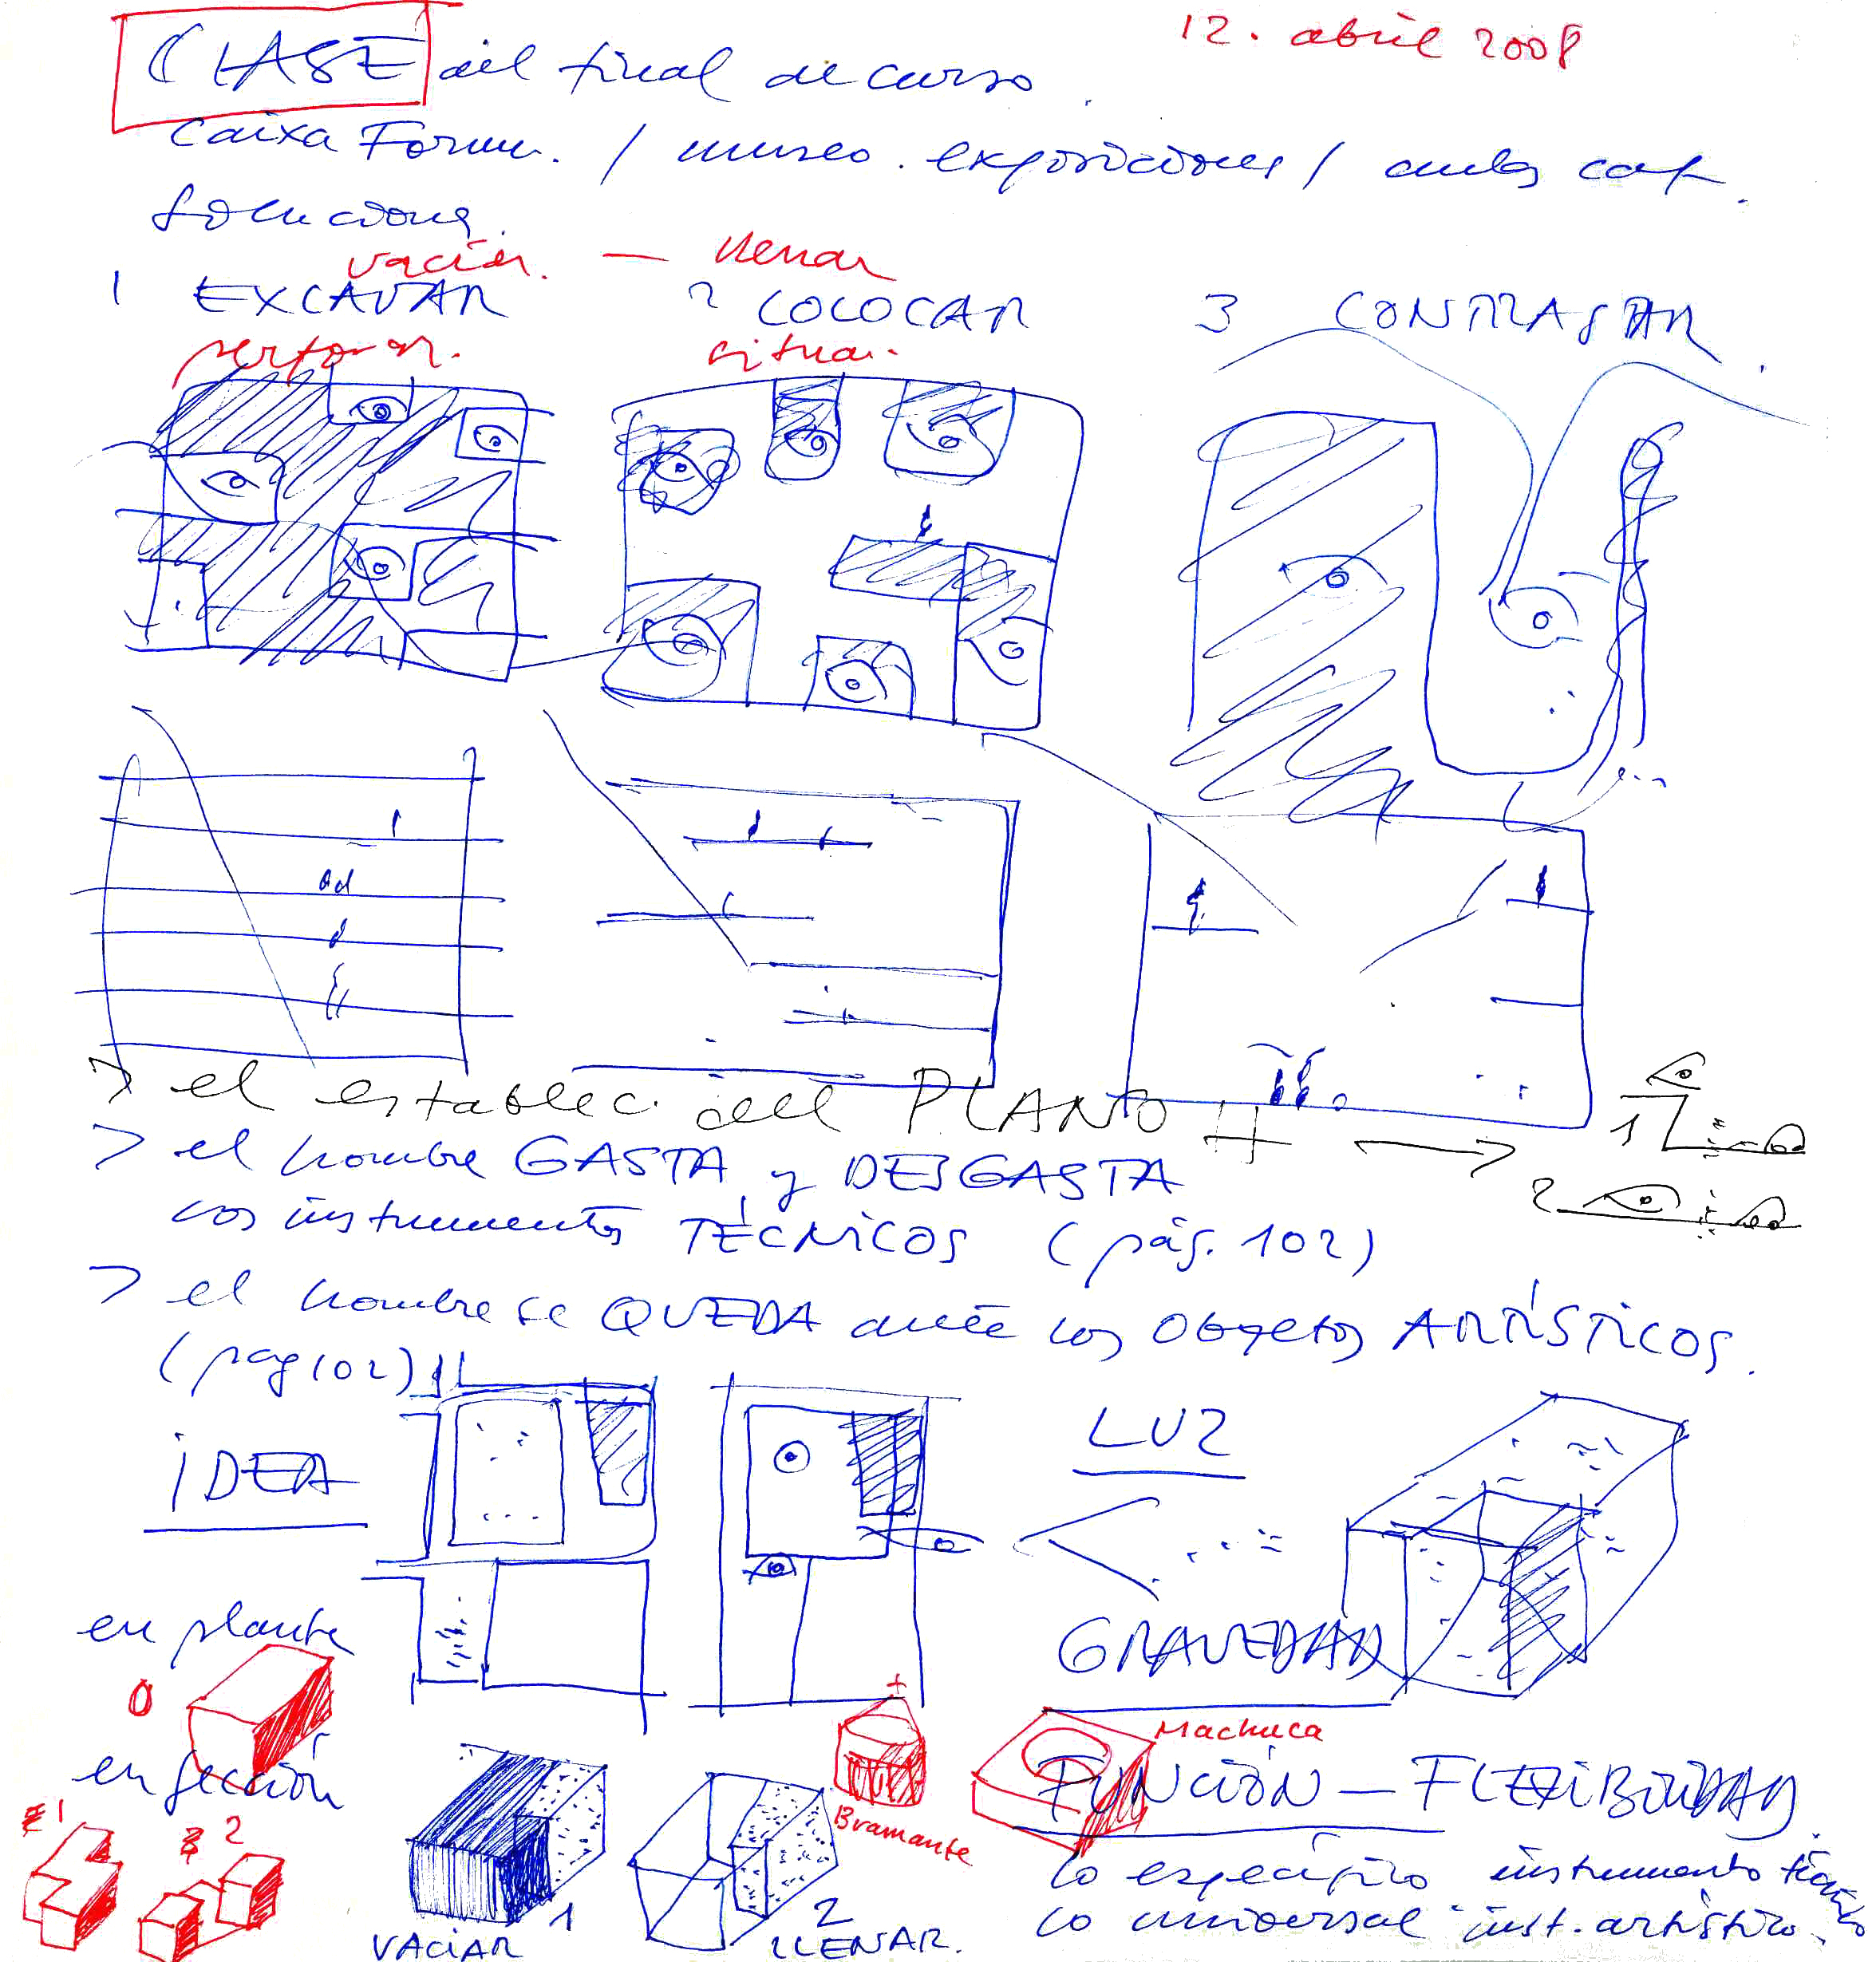 12. abril 2008
CLASE del final de curso.
Caixa Forum. / museo. exposiciones /
soluciones.
vaciar. — llenar
1 EXCAVAR 2 COLOCAR 3 CONTRASTAR.
perforar. situar.
> el establec. del PLANO H → 1
> el hombre GASTA y DESGASTA 2
los instrumentos TÉCNICOS (pág. 102)
> el hombre se QUEDA ante los objetos ARTÍSTICOS.
(pag 102)
IDEA LUZ
en planta GRAVEDAD
0
Machuca
en sección FUNCIÓN – FLEXIBILIDAD.
1 2 Bramante
lo específico instrumento técnico
1 2 lo universal inst. artístico.
VACIAR LLENAR.